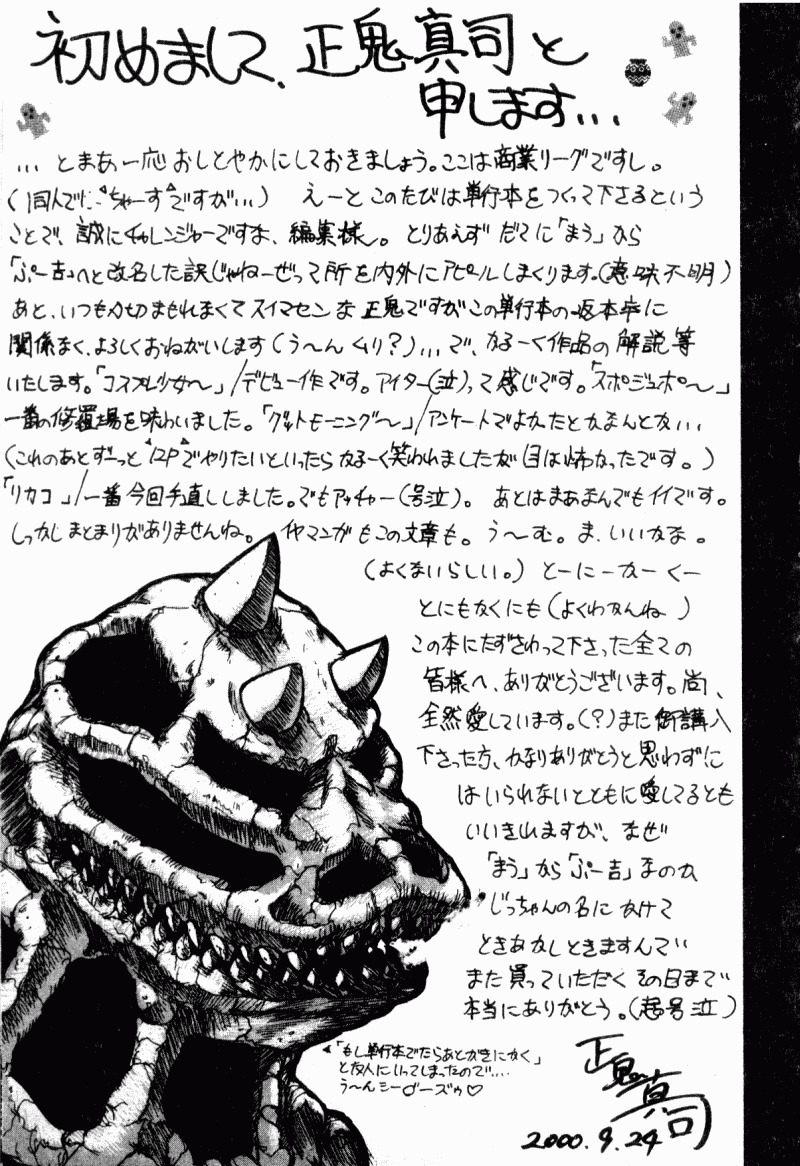 初めまして、正鬼真司と
申します…
…とまあ一応おしとやかにしておきましょう。ここは商業リーグですし。
(同人でに"ちゃーす"ですが…) えーとこのたびは単行本をつくって下さるという
ことで、誠にチャレンジャーですな、編集様。とりあえずだてに「まう」から
「ぷー吉」へと改名した訳じゃねーぜって所を内外にアピールしまくります。(意味不明)
あと、いつも〆切まもれなくてスイマセンな正鬼ですがこの単行本の返本率に
関係なく、よろしくおねがいします(う〜んくり?)…で、かるーく作品の解説等
いたします。「コスプレ少女〜」/デビュー作です。アイター(泣)って感じです。「スポジュポ〜」
一番の修羅場を味わいました。「グットモーニング〜」/アンケートでよかったとかなんとか…
(これのあとずーっと"12P"でやりたいといったらかるーく笑われましたが目は怖かったです。)
「リカコ」/一番今回手直ししました。でもアッチャー(号泣)。あとはまあなんでもイイです。
しっかしまとまりがありませんね。イヤマンガもこの文章も。う〜む。ま、いいかな。
(よくないらしい。) とーにーかーくー
とにもかくにも(よくわかんね)
この本にたずさわって下さった全ての
皆様へ、ありがとうございます。尚、
全然愛しています。(?)また御講入
下さった方、かなりありがとうと思わずに
はいられないとともに愛してるとも
いいきれますが、なぜ
「まう」から「ぷー吉」なのか
じっちゃんの名にかけて
ときあかしときますんで
また買っていただくその日まで
本当にありがとう。(超号泣)
「もし単行本でたらあとがきにかく」
と友人にいってしまったので…
う〜んシーダーズゥ♡
正鬼真司
2000.9.24